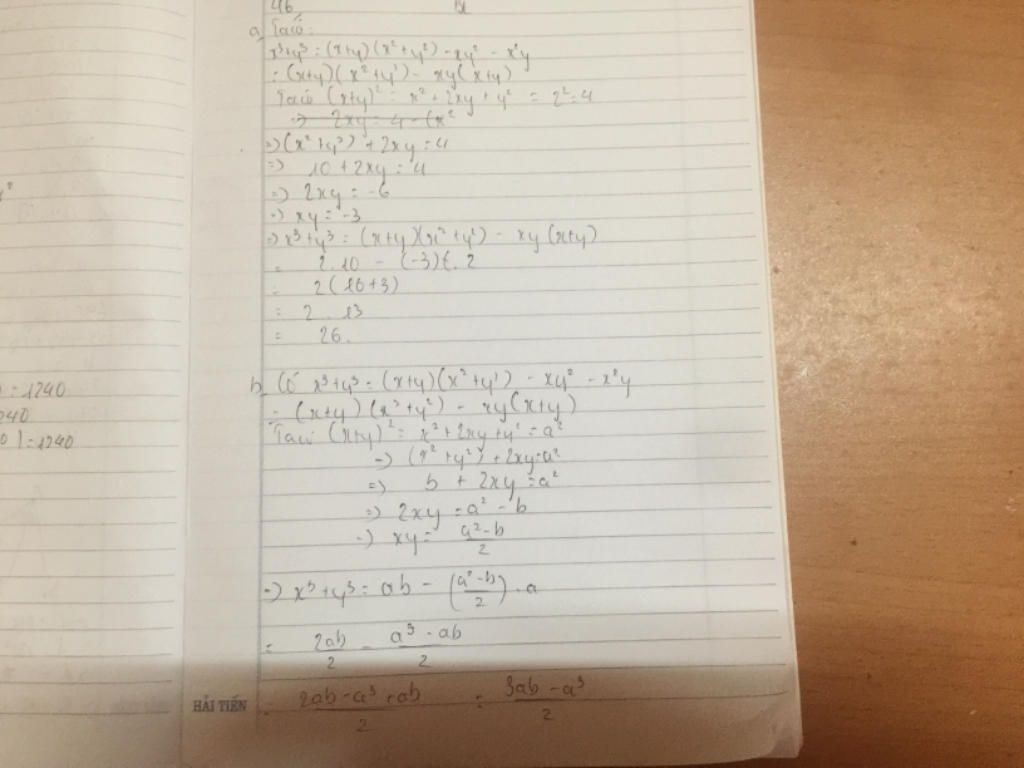 46.
a, Ta có:
x³+y³ = (x+y)(x²+y²) - xy² - x²y
= (x+y)(x²+y²) - xy(x+y)
Ta có (x+y)² = x² + 2xy + y² = 2² = 4
=> 2xy = 4 - (x²
=> (x²+y²) + 2xy = 4
=> 10 + 2xy = 4
=> 2xy = -6
=> xy = -3
=> x³+y³ = (x+y)(x²+y²) - xy(x+y)
= 2.10 - (-3). 2
= 2(10+3)
= 2 . 13
= 26.
b, Có x³+y³ = (x+y)(x²+y²) - xy² - x²y
= (x+y)(x²+y²) - xy(x+y)
Ta có (x+y)² = x² + 2xy + y² = a²
=> (x²+y²) + 2xy = a²
=> b + 2xy = a²
=> 2xy = a² - b
=> xy = \frac{a²-b}{2}
=> x³+y³ = ab - (\frac{a²-b}{2}) . a
= \frac{2ab}{2} - \frac{a³-ab}{2}
= \frac{2ab-a³+ab}{2} = \frac{3ab-a³}{2}
HẢI TIẾN
= 1240
240
= 1240